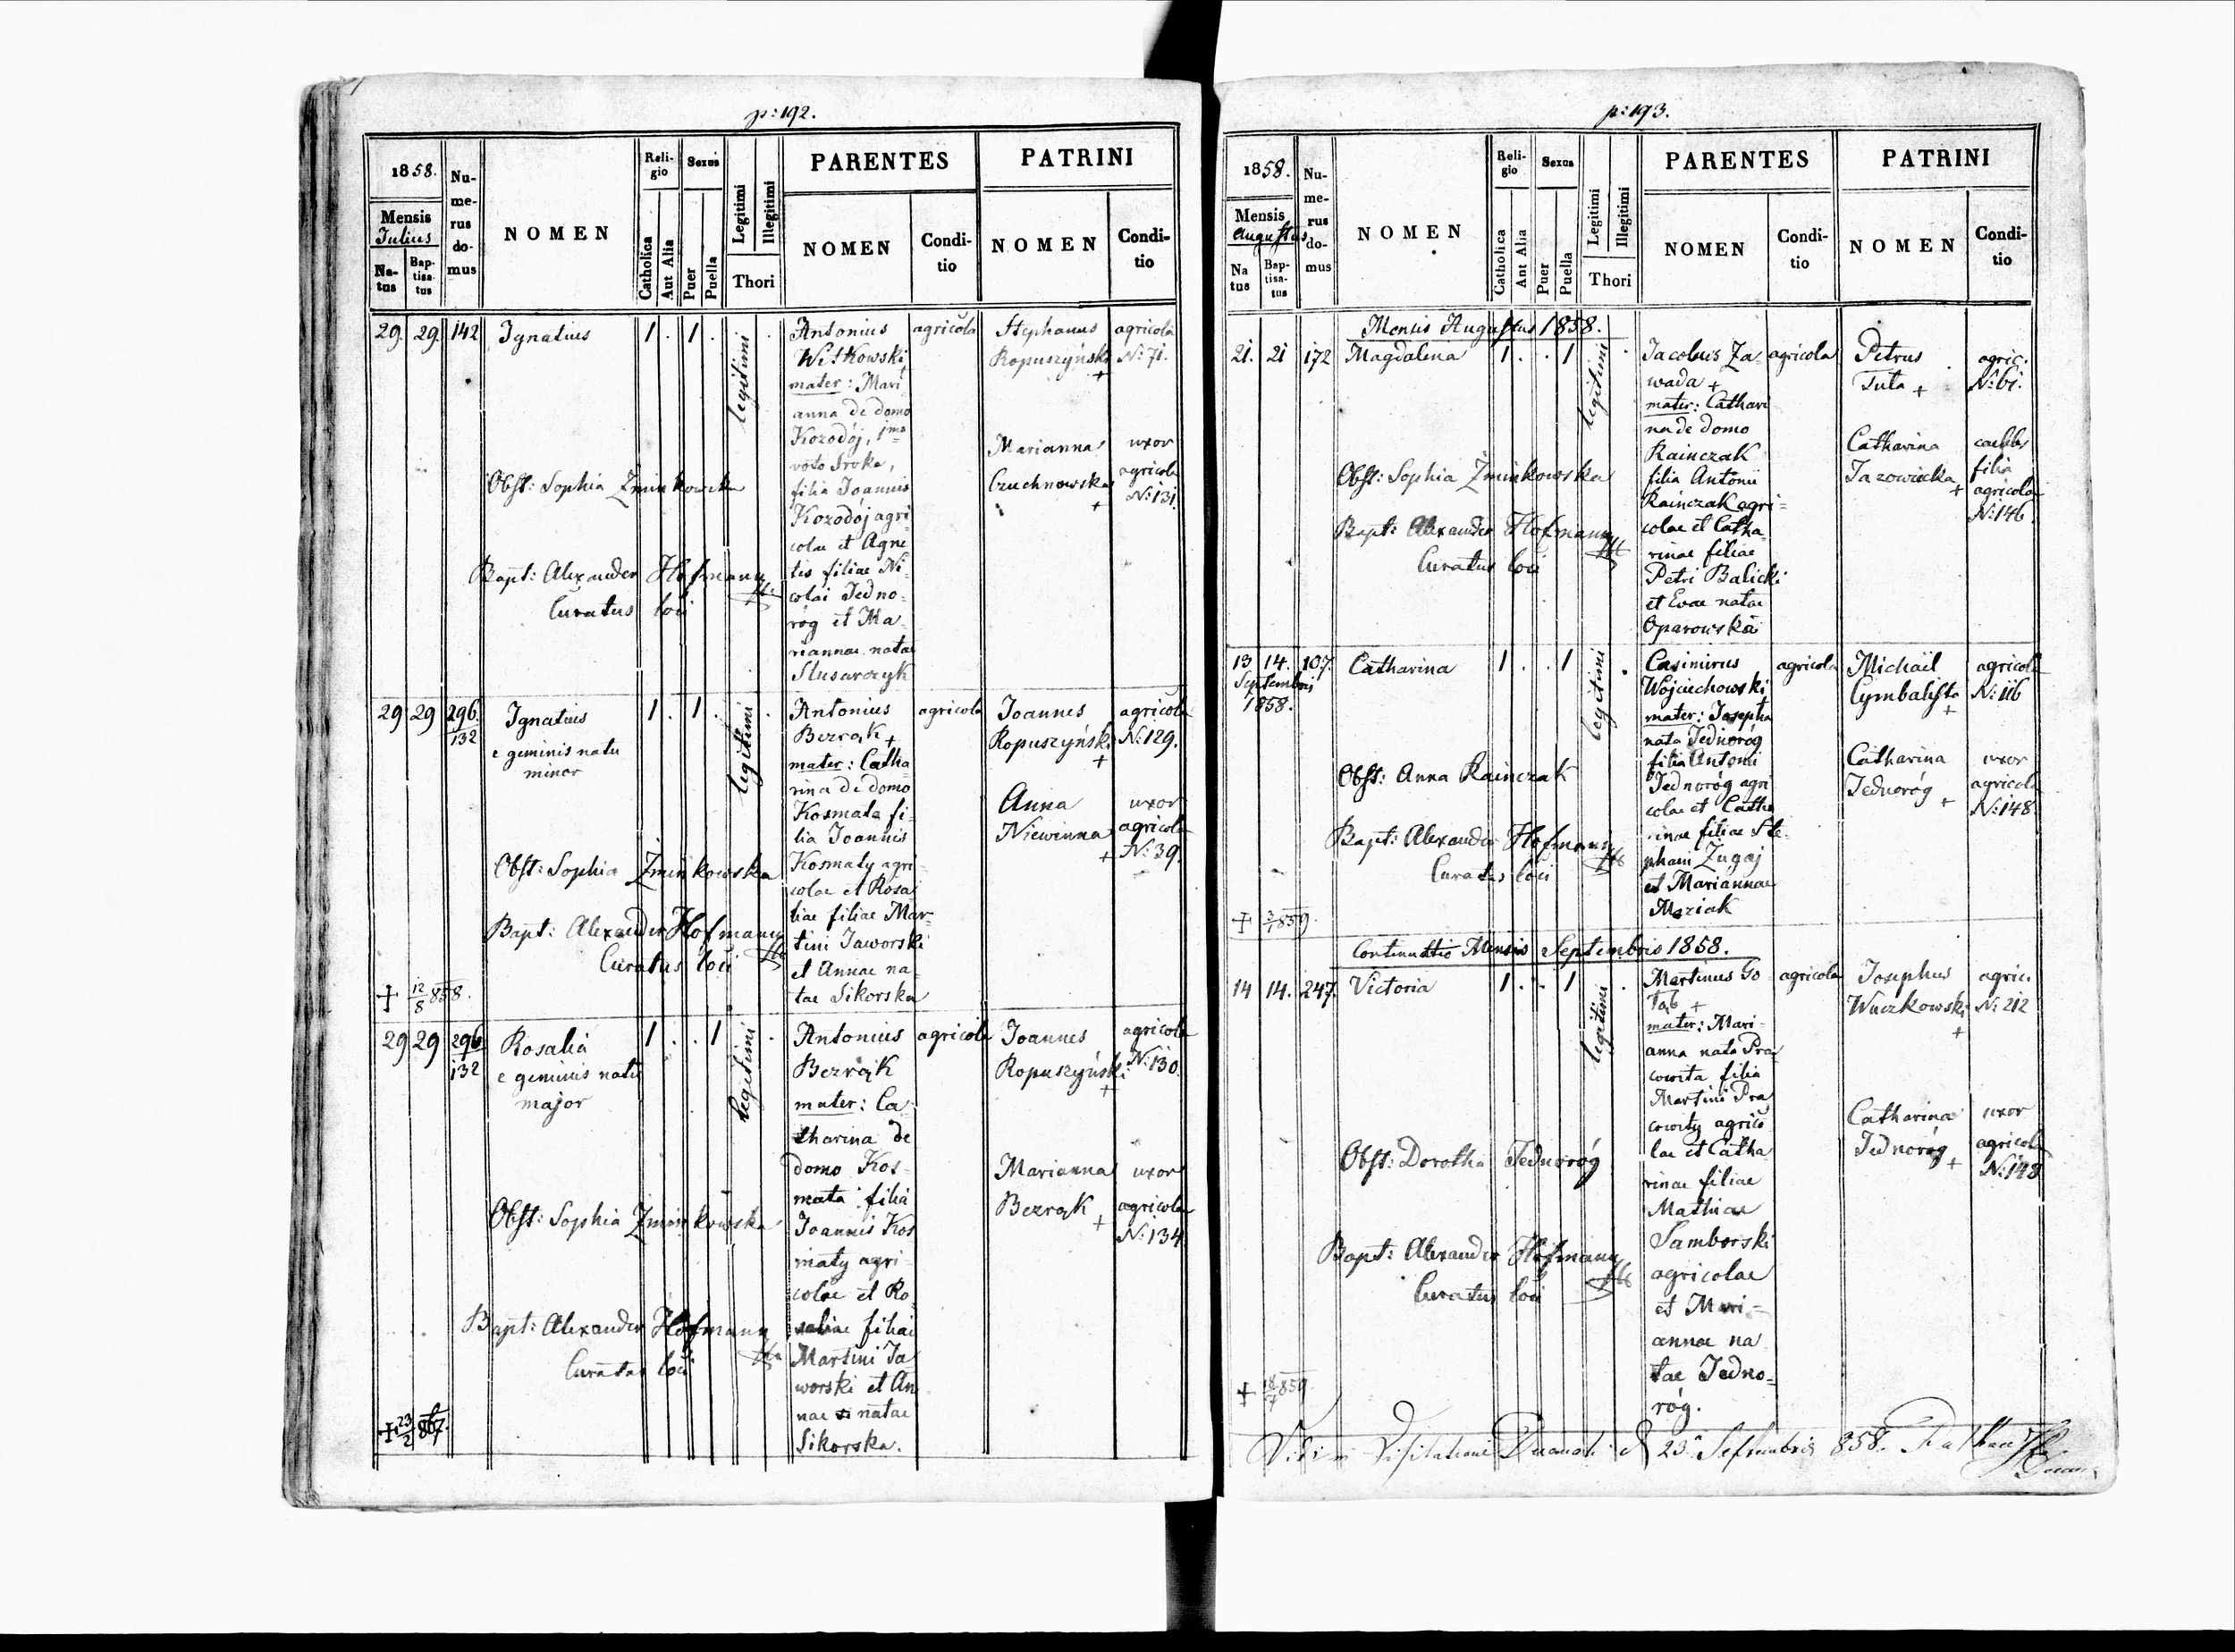 p: 192.
1858.
Mensis
Julius
Na-
tus
Bap-
tisa-
tus
Nu-
me-
rus
do-
mus
NOMEN
Reli-
gio
Catholica
Aut Alia
Sexus
Puer
Puella
Legitimi
Illegitimi
Thori
PARENTES
NOMEN
Condi-
tio
PATRINI
NOMEN
Condi-
tio
29. 29. 142 Ignatius 1 . 1 . legitimi .
Obst: Sophia Zminkowska
Bapt: Alexander Hofmann
Curatus loci
Antonius
Witkowski +
mater: Mari
anna de domo
Kozodój, 1mo
voto Sroka,
filia Joannis
Kozodój agri
colae et Agne
tis filiae Ni-
colai Jedno=
róg et Ma-
riannae natae
Slusarczyk
agricola
Stephanus
Ropuszyński
+
agricola
N: 71.
Marianna
Czuchnowska
+
uxor
agricola
N: 131.
29 29 296. Ignatius 1 . 1 . legitimi .
132
e geminis natu
minor
Obst: Sophia Zminkowska
Bapt: Alexander Hofmann
Curatus loci
+ 12/8 858.
Antonius
Bezrąk +
mater: Catha
rina de domo
Kosmata fi-
lia Joannis
Kosmaty agri-
colae et Rosa
liae filiae Mar-
tini Jaworski
et Annae na-
tae Sikorska
agricola
Joannes
Ropuszyński
+
agricola
N: 129.
Anna
Niewinna
+
uxor
agricola
N: 39.
29 29 296 Rosalia 1 . . 1 legitimi .
132
e geminis natu
major
Obst: Sophia Zminkowska
Bapt: Alexander Hofmann
Curatus loci
+ 23/2 867.
Antonius
Bezrąk
mater: Ca-
tharina de
domo Kos-
mata filia
Joannis Kos
maty agri-
colae et Ro
saliae filiae
Martini Ja
worski et An
nae natae
Sikorska.
agricola
Joannes
Ropuszyński
+
agricola
N: 130.
Marianna
Bezrąk
+
uxor
agricola
N: 134
p: 193.
1858.
Mensis
Augustus
Na
tus
Bap-
tisa-
tus
Nu-
me-
rus
do-
mus
NOMEN
Reli-
gio
Catholica
Aut Alia
Sexus
Puer
Puella
Legitimi
Illegitimi
Thori
PARENTES
NOMEN
Condi-
tio
PATRINI
NOMEN
Condi-
tio
Mensis Augustus 1858.
21. 21 172 Magdalena 1 . . 1 legitimi .
Obst: Sophia Zminkowska
Bapt: Alexander Hofmann
Curatus loci
Jacobus Za-
wada +
mater: Cathari
na de domo
Rainczak
filia Antonii
Rainczak agri=
colae et Catha-
rinae filiae
Petri Balicki
et Evae natae
Oparowska
agricola
Petrus
Tuta +
agric:
N: 61.
Catharina
Jazowicka
+
caelebs
filia
agricolae
N: 146
13 14. 107. Catharina 1 . . 1 legitimi .
Septembris
1858.
Obst: Anna Rainczak
Bapt: Alexander Hofmann
Curatus loci
+ 3/1 859.
Casimirus
Wojciechowski
mater: Josepha
nata Jednoróg
filia Antoni
Jednoróg agri
colae et Catha
rinae filiae Ste-
phani Zugaj
et Mariannae
Maziak
agricola
Michäil
Cymbalista
+
agricola
N: 116
Catharina
Jednoróg
+
uxor
agricola
N: 148
Continuatio Mensis Septembris 1858.
14 14. 247. Victoria 1 . . 1 legitimi .
Obst: Dorotha Jednoróg
Bapt: Alexander Hofmann
Curatus loci
+ 18/7 859.
Martinus Go
łąb +
mater: Mari-
anna nata Pra
cowita filia
Martini Pra
cowity agrico
lae et Catha
rinae filiae
Mathiae
Samborski
agricolae
et Mari-
annae na
tae Jedno-
róg.
agricola
Josephus
Wuczkowski
+
agric.
N: 212
Catharina
Jednoróg
+
uxor
agricola
N: 148
Visi in Visitatione Decanali d 23 Septembris 858.